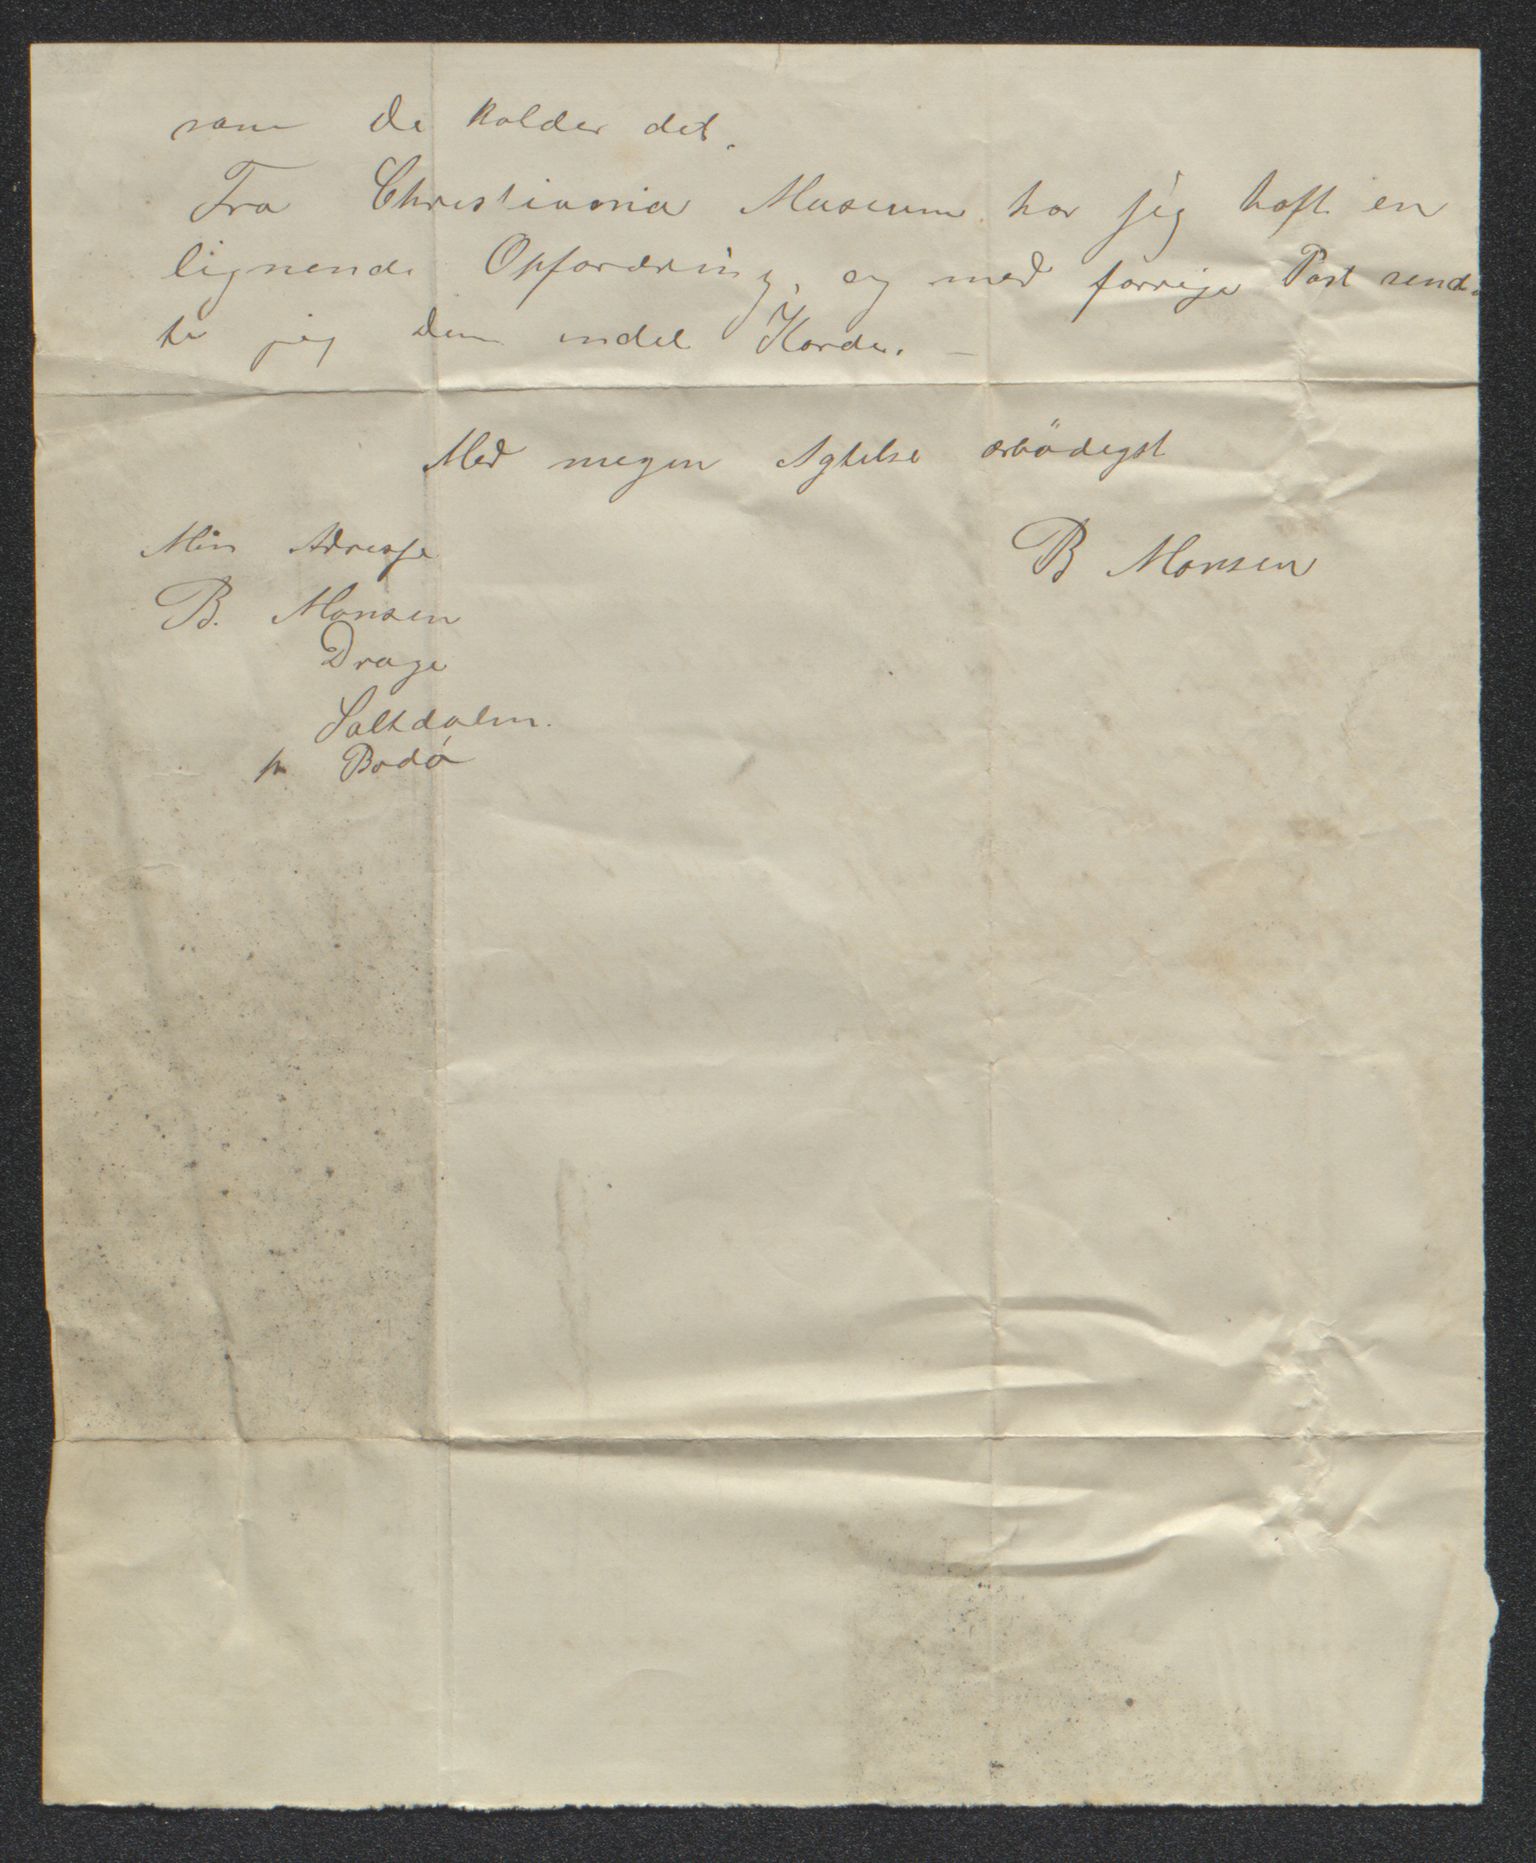 som De kalder det.
Fra Christiania Museum har jeg haft en
lignende Opfordring, og med forrige Post send-
te jeg dem endel Karder. –
Med megen Agtelse ærbödigst
B Monsen
Min Adresse
B. Monsen
Drage
Saltdalen.
pr Bodø